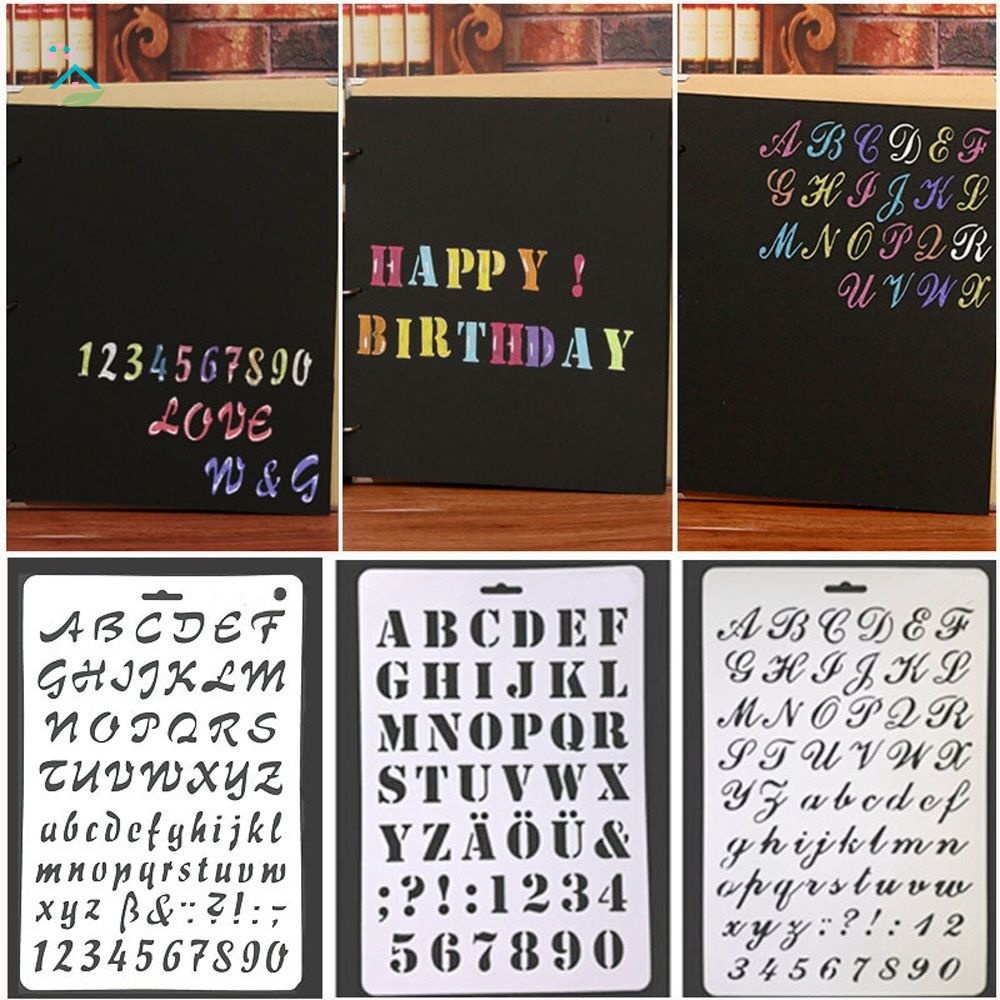 1234567890
LOVE
W & G
HAPPY !
BIRTHDAY
ABCDEF
GHIJKL
MNOPQR
UVWX
ABCDEF
GHIJKLM
NOPQRS
TUVWXYZ
abcdefghijkl
mnopqrstuvw
xyz ß&¨?!:;
1234567890
ABCDEF
GHIJKL
MNOPQR
STUVWX
YZÄÖÜ&
;?!:1234
567890
ABCDEF
GHIJKL
MNOPQR
STUVWX
YZabcdef
ghijklmn
opqrstuvw
xyz¨?!:12
34567890